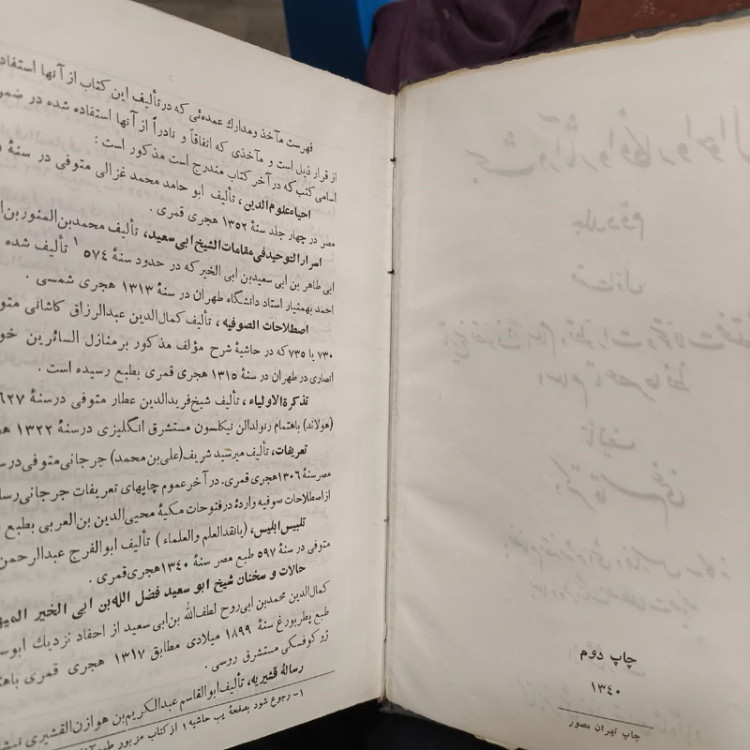 فهرست مآخذ ومدارك عمده‌ئی كه درتأليف اين كتاب از آنها
از قرار ذيل است و مآخذی كه اتفاقاً و نادراً از آنها استفاده شده در
اسامی كتب كه در آخر كتاب مندرج است مذكور است :
احياء علوم الدين، تأليف ابو حامد محمد غزالی متوفی در سنهٔ
مصر در چهار جلد سنهٔ ۱۳۵۲ هجری قمری .
اسرار التوحيد فی مقامات الشيخ ابی سعيد، تأليف محمدبن المنوربن
ابی طاهر بن ابی سعيدبن ابی الخير كه در حدود سنهٔ ۵۷۴ ۱ تأليف شده
احمد بهمنيار استاد دانشگاه طهران در سنهٔ ۱۳۱۳ هجری شمسی .
اصطلاحات الصوفيه ، تأليف كمال‌الدين عبدالرزاق كاشانی
۷۳۰ يا ۷۳۵ كه در حاشيهٔ شرح مؤلف مذكور بر منازل السائرين
انصاری در طهران در سنهٔ ۱۳۱۵ هجری قمری بطبع رسيده است .
تذكرة الاولياء ، تأليف شيخ فريدالدين عطار متوفی درسنهٔ ۶۲۷
(هولاند) باهتمام رنولدالن نيكلسون مستشرق انگليزی درسنهٔ ۱۳۲۲
تعريفات، تأليف ميرسيد شريف (علی بن محمد) جرجانی متوفی در
مصر سنهٔ ۱۳۰۶ هجری قمری. در آخر عموم چاپهای تعريفات جرجانی
از اصطلاحات صوفيه واردهٔ در فتوحات مكيهٔ محيی‌الدين بن العربی بطبع
تلبيس ابليس، (يا نقد العلم والعلماء ) تأليف ابوالفرج عبدالرحمن
متوفی در سنهٔ ۵۹۷ طبع مصر سنهٔ ۱۳۴۰ هجری قمری .
حالات و سخنان شيخ ابو سعيد فضل الله بن ابی الخير
كمال‌الدين محمدبن ابی روح لطف‌الله بن ابی سعيد از احفاد نزديك
طبع پطربورغ سنهٔ ۱۸۹۹ ميلادی مطابق ۱۳۱۷ هجری قمری
ژوكوفسكی مستشرق روسی .
رسالهٔ قشيريه، تأليف ابوالقاسم عبدالكريم بن هوازن القشيری
۱- رجوع شود بصفحهٔ يب حاشيه ۱ از كتاب مزبور
چاپ دوم
۱۳۴۰
چاپ تهران مصور